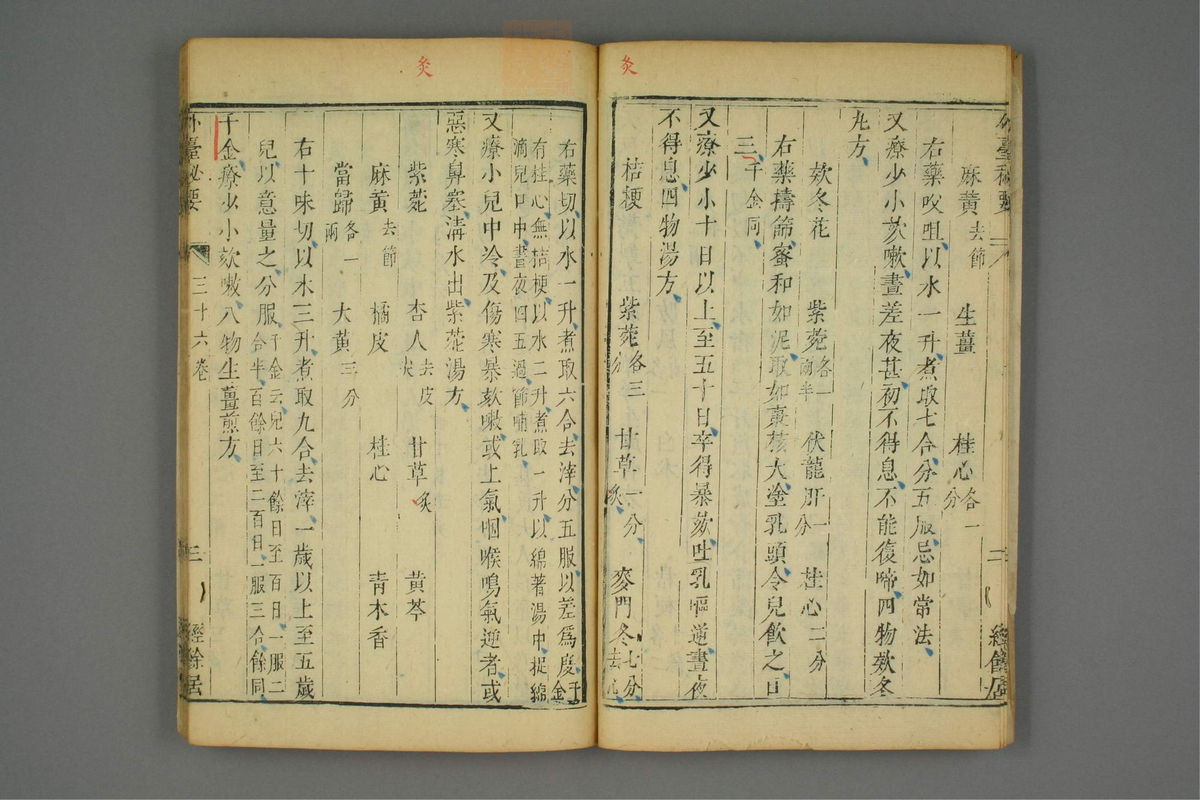 炙
麻黄去節 生薑 桂心各一分
右藥㕮咀以水一升煮取七合分五服忌如常法
又療少小欬嗽晝差夜甚初不得息不能復啼四物欬冬
丸方
欬冬花 紫菀各一兩半 伏龍肝一分 桂心二分
右藥擣篩蜜和如泥取如棗核大塗乳頭令兒飲之日
三千金同
又療少小十日以上至五十日卒得暴欬吐乳嘔逆晝夜
不得息四物湯方
桔梗 紫菀各三分 甘草一分炙 麥門冬七分去心
炙
右藥切以水一升煮取六合去滓分五服以差爲度千金
有桂心無桔梗以水二升煮取一升以綿著湯中捉綿
滴兒口中晝夜四五過節哺乳
又療小兒中冷及傷寒暴欬嗽或上氣咽喉鳴氣逆者或
惡寒鼻塞清水出紫菀湯方
紫菀 杏人去皮尖 甘草炙 黄芩
麻黄去節 橘皮 桂心 青木香
當歸各一兩 大黄三分
右十味切以水三升煮取九合去滓一歲以上至五歲
兒以意量之分服千金云兒六十餘日至百日一服二
合半百餘日至二百日一服三合餘同
千金療少小欬嗽八物生薑煎方
外臺秘要 三十六卷 三 經餘居